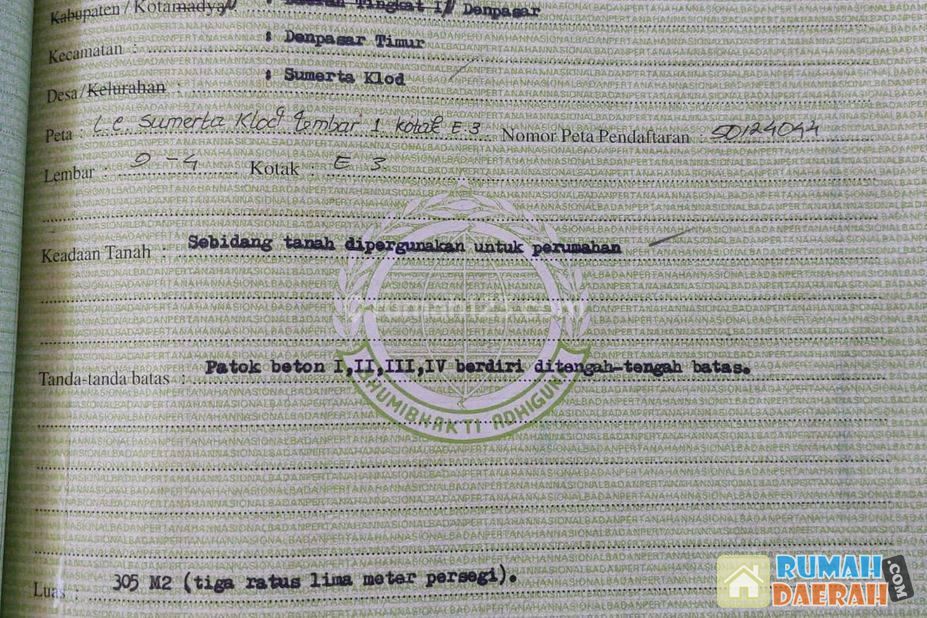 Kabupaten / Kotamadya : Daerah Tingkat II Denpasar
Kecamatan : Denpasar Timur
Desa/Kelurahan : Sumerta Klod
Peta : Sumerta Klod Lembar 1 Kotak E.3 Nomor Peta Pendaftaran :
Lembar : 9 - 4 Kotak : E 3
Keadaan Tanah : Sebidang tanah dipergunakan untuk perumahan
rumah123.com
Tanda-tanda batas : Patok beton I,II,III,IV berdiri ditengah-tengah batas.
BHUMIBHAKTI ADHIGUNA
Luas : 305 M2 (tiga ratus lima meter persegi).
RUMAH
DAERAH
.COM